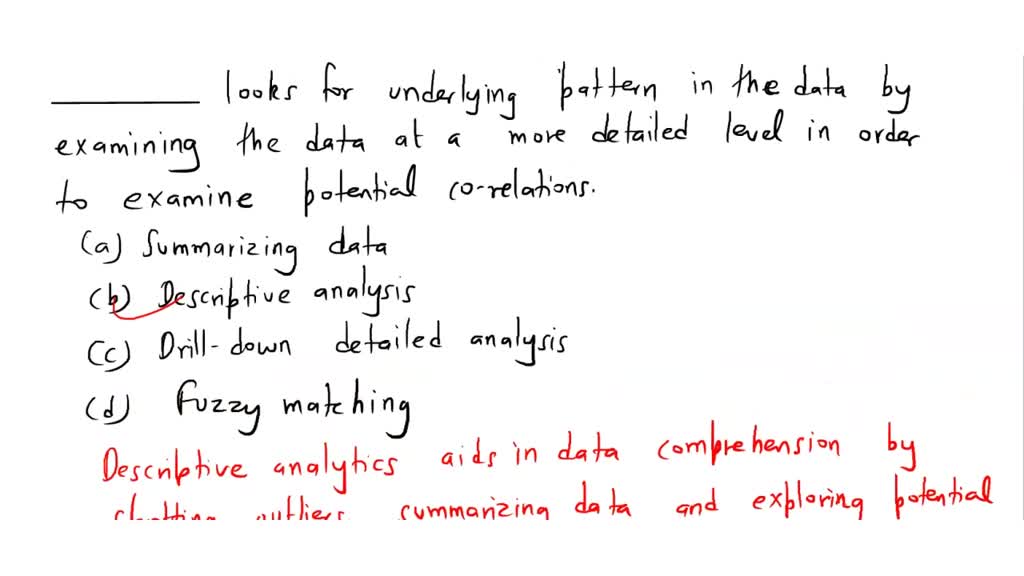 ________ looks for underlying pattern in the data by
examining the data at a more detailed level in order
to examine potential co-relations.
(a) Summarizing data
(b) Descriptive analysis
(c) Drill-down detailed analysis
(d) Fuzzy matching
Descriptive analytics aids in data comprehension by
outliers, summarizing data and exploring potential